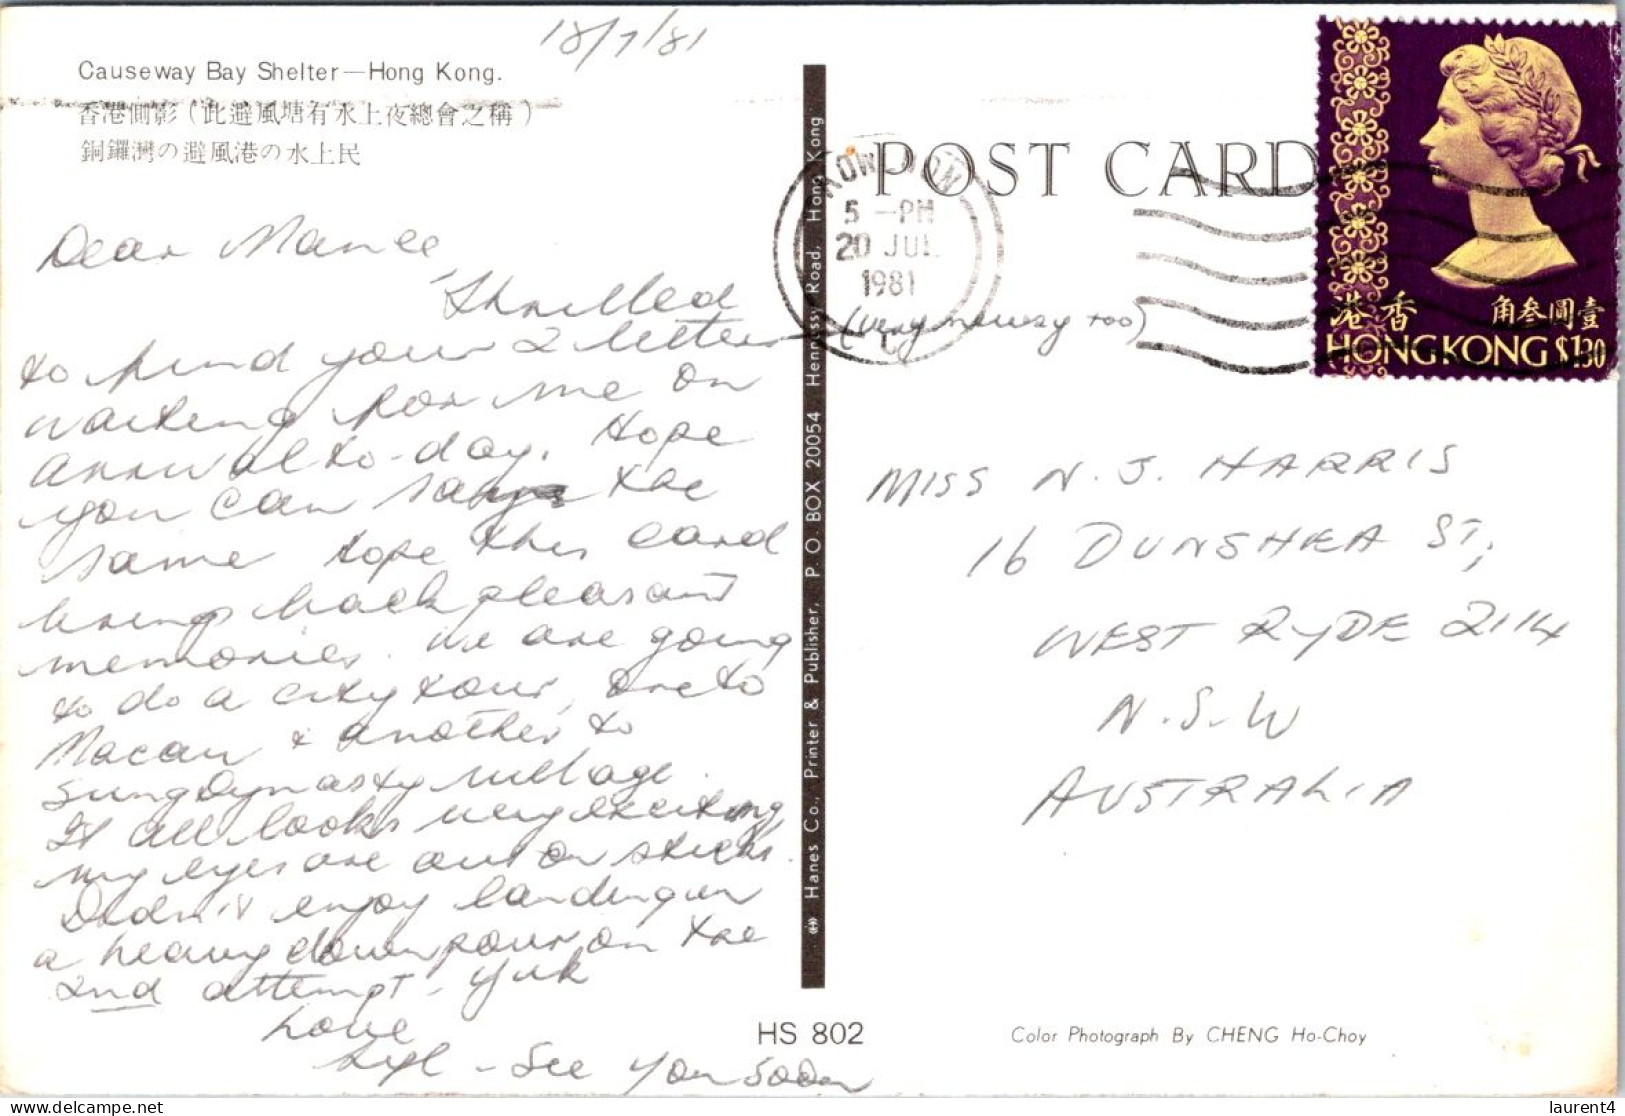 18/7/81
Causeway Bay Shelter—Hong Kong.
香港側影(此避風塘有水上夜總會之稱)
銅鑼灣の避風港の水上民
Dear
Thrilled
to find your 2 letters
(very newsy too)
waiting for me on
arrival to-day. Hope
you can say the
same hope this card
brings back pleasant
memories. We are going
to do a city tour, one to
Macau & another to
Sung Dynasty village.
It all looks very exciting,
my eyes are out on sticks.
Didn't enjoy landing in
a heavy downpour on the
2nd attempt - Yuk
Love
Syl - See You Soon
POST CARD
KOWLOON
5 -PM
20 JUL
1981
港香 角叁圓壹
HONG KONG $1.30
MISS N. J. HARRIS
16 DUNSHEA ST,
WEST RYDE 2114
N.S.W
AUSTRALIA
Hanes Co., Printer & Publisher, P. O. BOX 20054 Hennessy Road, Hong Kong
HS 802
Color Photograph By CHENG Ho-Choy
delcampe.net
laurent4